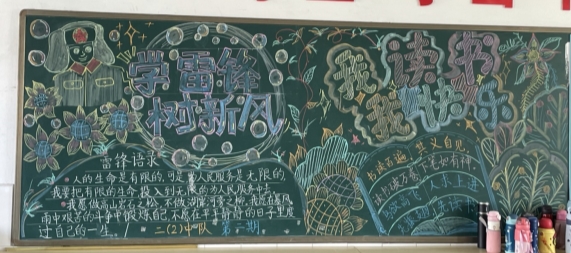 学雷锋
树新风
雷锋语录
人的生命是有限的,可是为人民服务是无限的,
我要把有限的生命,投入到无限的为人民服务中去
我愿做高山岩石之松,不做湖岸河旁之柳,我愿在暴风
雨中艰苦的斗争中锻炼自己,不愿在平平静静的日子里度
过自己的一生。
二(2)中队 第一期
我读书
我快乐
书读百遍,其义自见
读书破万卷,下笔如有神
鸟欲高飞
人求上进
先读书